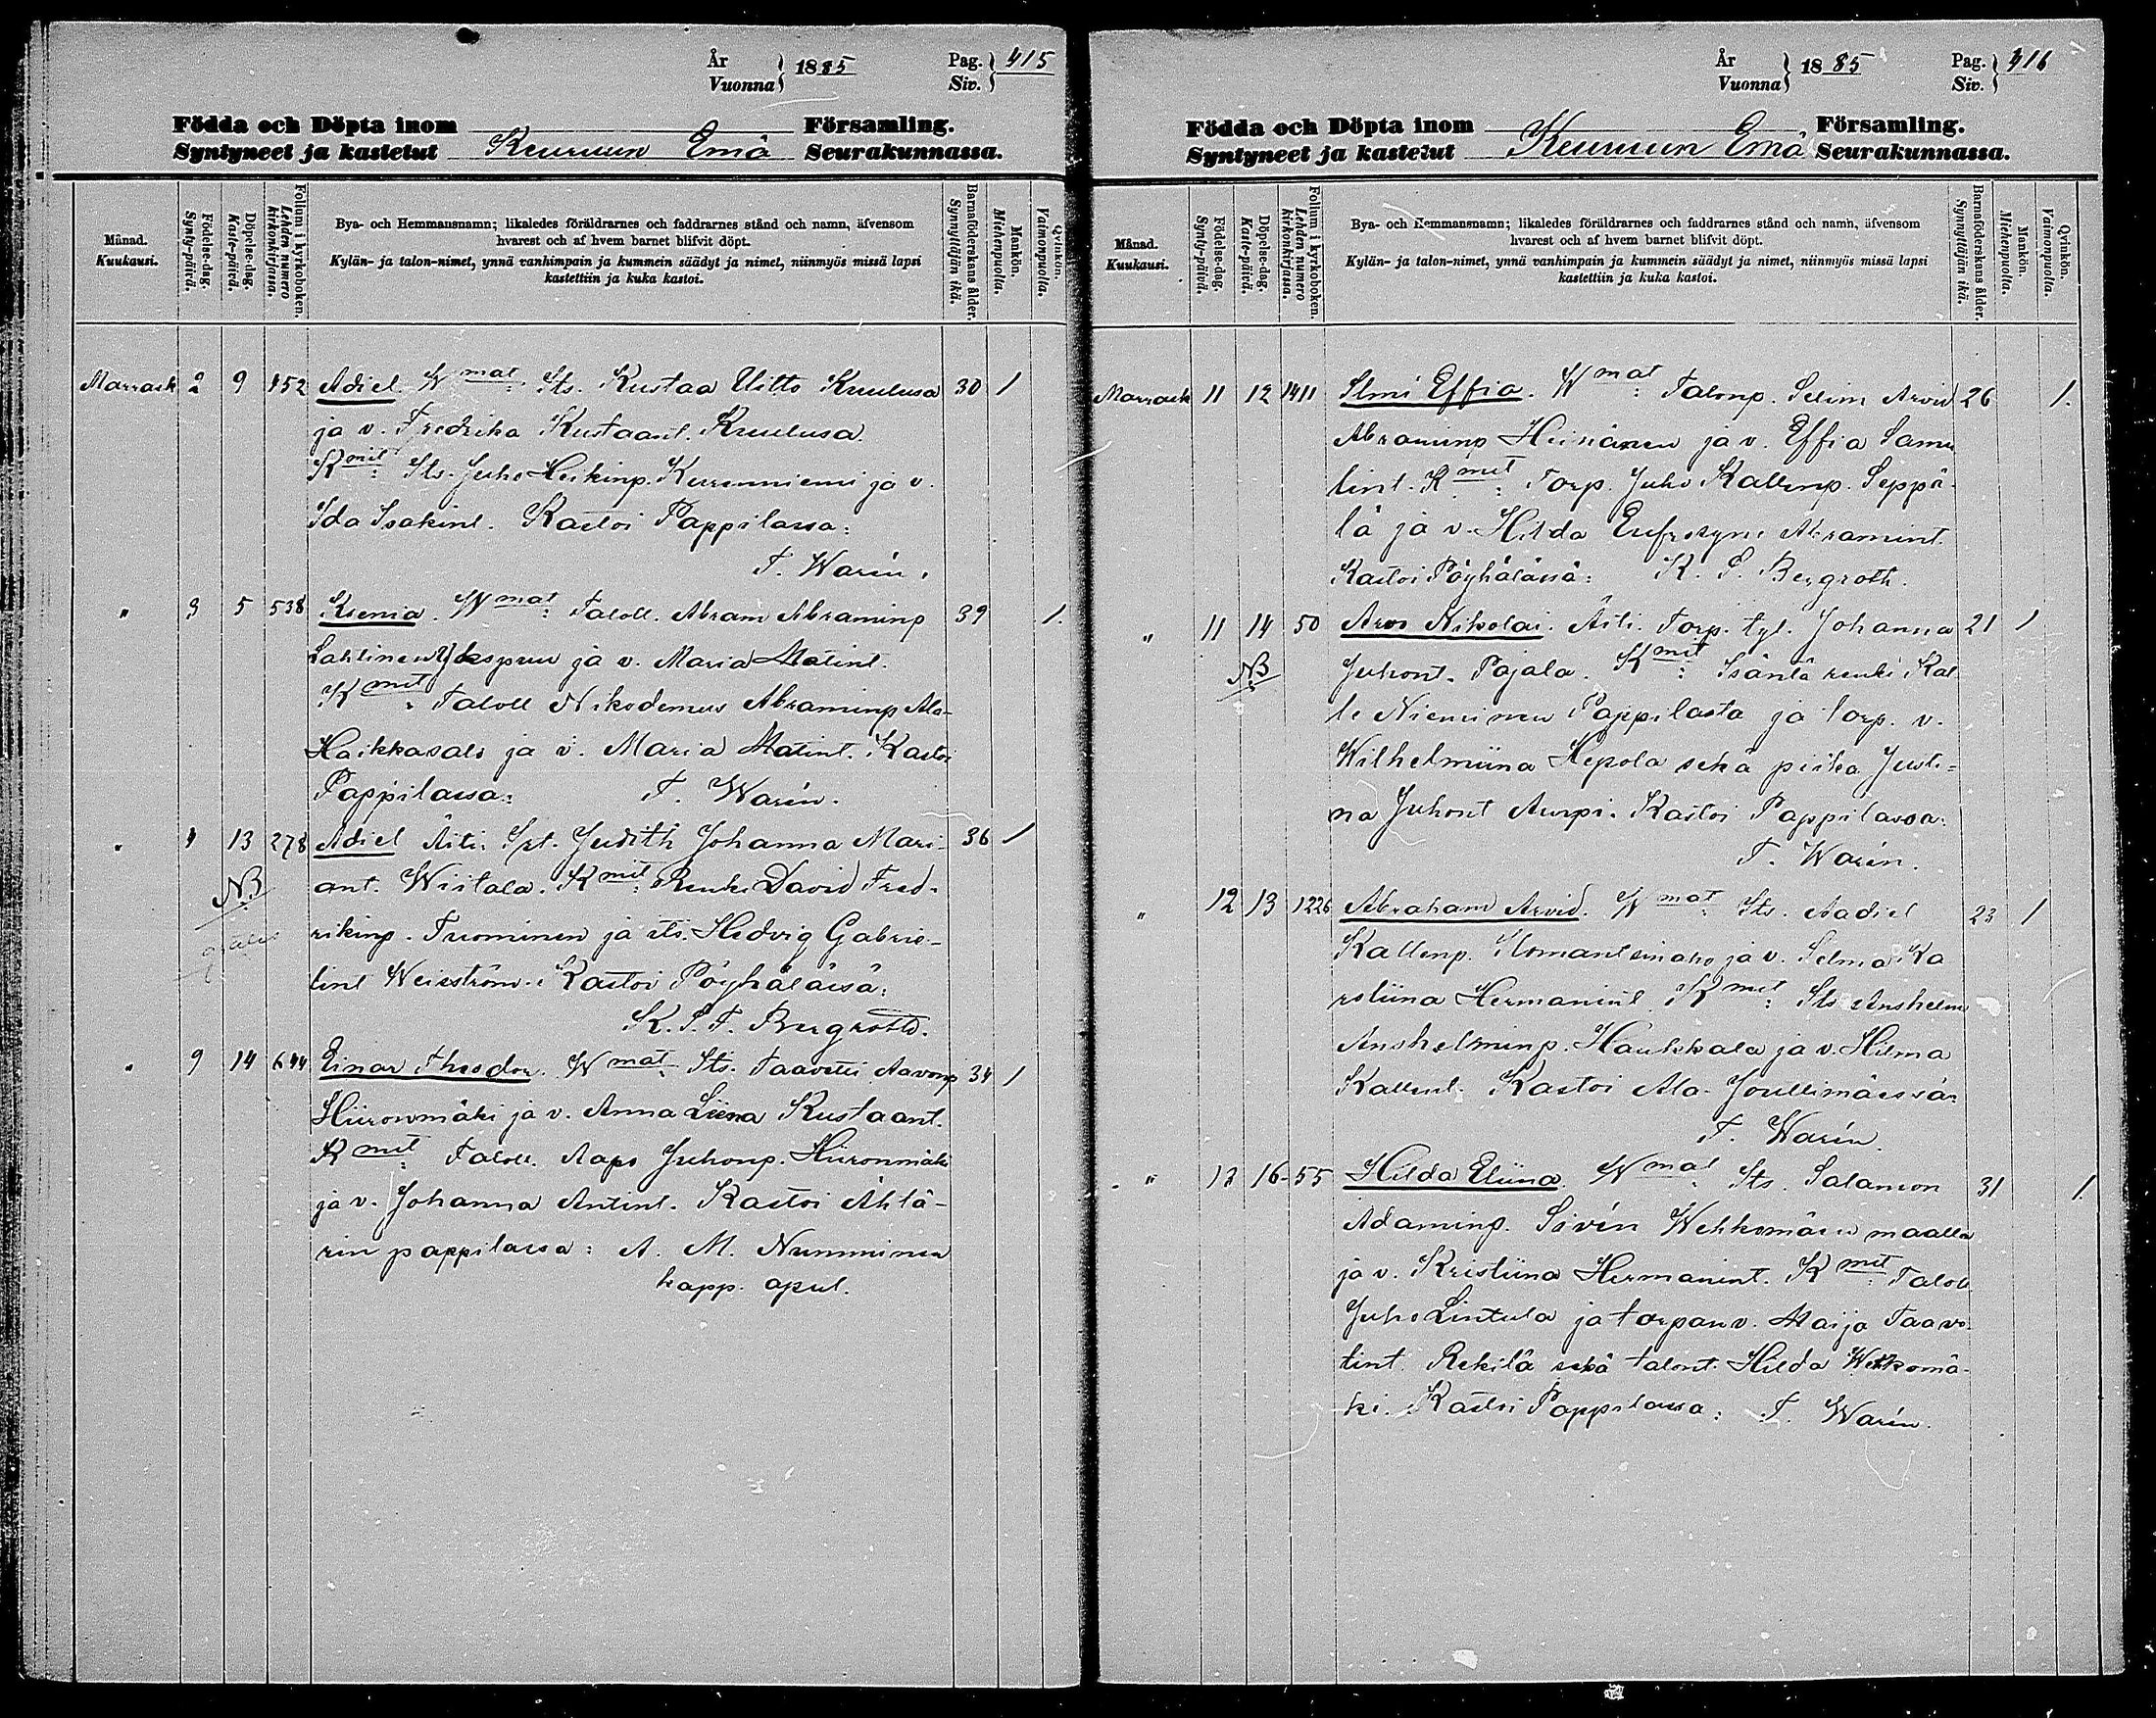 År
Vuonna } 1885 Pag.
Siv. } 415
Födda och Döpta inom Församling.
Syntyneet ja kastetut Keuruun Emä Seurakunnassa.
Månad.
Kuukausi.
Födelse-dag.
Synty-päivä.
Döpelse-dag.
Kaste-päivä.
Folium i kyrkoboken.
Lehden numero
kirkonkirjassa.
Bya- och Hemmansnamn; likaledes föräldrarnes och faddrarnes stånd och namn, äfvensom
hvarest och af hvem barnet blifvit döpt.
Kylän- ja talon-nimet, ynnä vanhimpain ja kummein säädyt ja nimet, niinmyös missä lapsi
kastettiin ja kuka kastoi.
Barnaföderskans ålder.
Synnyttäjän ikä.
Mankön.
Miehenpuolia.
Qvinkön.
Vaimonpuolia.
Marrask 2 9 452 Adiel. Wmat: Its. Kustaa Uitto Kuulusa 30 1
ja v. Fredrika Kustaant. Kuulusa.
Kmit: Its. Juho Heikinp. Kurenniemi ja v.
Ida Isakint. Kastoi Pappilassa:
T. Warén.
" 3 5 538 Ksenia. Wmat: Taloll. Abram Abraminp 39 1.
Lahtinen ja v. Maria Matint.
Kmit: Taloll Nikodemus Abraminp Ala-
Haikkasalo ja v. Maria Matint. Kastoi
Pappilassa: T. Warén.
" 4 13 278 Adiel Äiti: Judith Johanna Mari- 36 1
NB ant. Wiitala. Kmit: Renki David Fred-
rikinp. Tuominen ja its. Hedvig Gabrie-
lint Weisström. Kastoi Pöyhälässä:
K. S. T. Bergroth.
" 9 14 644 Einar Theodor. Wmat: Its. Taavetti Aavonp 34 1
Hiironmäki ja v. Anna Liena Kustaant.
Kmit: Taloll. Aapo Juhonp. Hiironmäki
ja v. Johanna Antint. Kastoi Ähtä-
rin pappilassa: A. M. Numminen
kapp. apul.
År
Vuonna } 1885 Pag.
Siv. } 416
Födda och Döpta inom Församling.
Syntyneet ja kastetut Keuruun Emä Seurakunnassa.
Månad.
Kuukausi.
Födelse-dag.
Synty-päivä.
Döpelse-dag.
Kaste-päivä.
Folium i kyrkoboken.
Lehden numero
kirkonkirjassa.
Bya- och Hemmansnamn; likaledes föräldrarnes och faddrarnes stånd och namn, äfvensom
hvarest och af hvem barnet blifvit döpt.
Kylän- ja talon-nimet, ynnä vanhimpain ja kummein säädyt ja nimet, niinmyös missä lapsi
kastettiin ja kuka kastoi.
Barnaföderskans ålder.
Synnyttäjän ikä.
Mankön.
Miehenpuolia.
Qvinkön.
Vaimonpuolia.
Marrask 11 12 1411 Ilmi Effia. Wmat: Talonp. Selim Arvid 26 1.
Abraminp Heinänen ja v. Effia Samu
lint. Kmit: Torp. Juho Kallenp. Seppä-
lä ja v. Hilda Eufrosyne Abramint.
Kastoi Pöyhälässä: K. S. Bergroth.
" 11 14 50 Arvo Nikolai. Äiti: Torp. tyt. Johanna 21 1
NB Juhont. Pajala. Kmit: Isäntä renki Kal
le Nieminen Pappilasta ja torp. v.
Wilhelmiina Hepola sekä piika Justi-
na Juhont Aurpi. Kastoi Pappilassa:
T. Warén.
" 12 13 1226 Abraham Arvid. Wmat: Its. Aadiel 23 1
Kallenp. ja v. Selma Ka
roliina Hermanint. Kmit: Its Anshelm
Anshelminp. Haukkala ja v. Hilma
Kallent. Kastoi Ala-Jouttimäessä:
T. Warén.
" 12 16 55 Hilda Eliina. Wmat: Its. Salamon 31 1
Adaminp. Sivén Wehkomäen maalla
ja v. Kristiina Hermanint. Kmit: Taloll
Juho Lintula ja torpan v. Maija Taave-
tint. Rekilä sekä talont. Hilda Wehkomä-
ki. Kastoi Pappilassa: T. Warén.